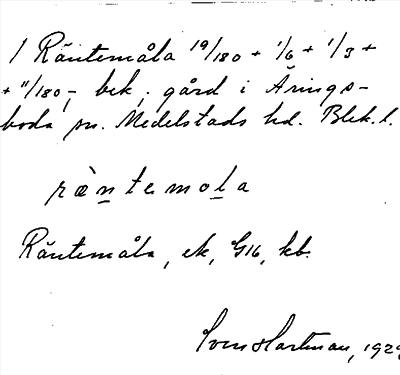 1 Räntemåla 19/180 + 1/6 + 1/3 +
+ 11/180, bek. gård i Årings-
boda sn. Medelstads hd. Blek. l.
rä̀ntemola
Räntemåla, ek, G16, kb.
Sven Hartman, 192